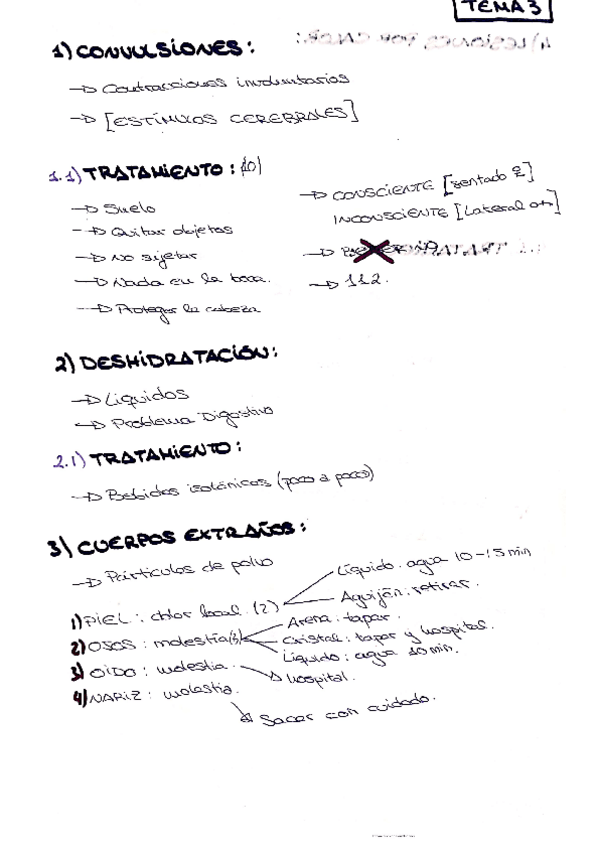 TEMA 3
1) CONVULSIONES:
→ Contracciones involuntarias
→ [ESTÍMULOS CEREBRALES]
1.1) TRATAMIENTO:
→ Suelo
→ Quitar objetos
→ No sujetar
→ Nada en la boca.
→ Proteger la cabeza
→ CONSCIENTE [sentado
INCONSCIENTE [Lateral
→ 112.
2) DESHIDRATACIÓN:
→ Líquidos
→ Problema Digestivo
2.1) TRATAMIENTO:
→ Bebidas isotónicas (poco a poco)
3) CUERPOS EXTRAÑOS:
→ Partículas de polvo
1) PIEL: dolor local. (2)
Líquido. agua 10-15 min
Aguijón. retirar.
2) OJOS: molestia (3)
Arena: tapar.
Cristal: tapar y hospital.
Líquido: agua 10 min.
3) OÍDO: molestia.
→ hospital.
4) NARIZ: molestia.
→ Sacar con cuidado.